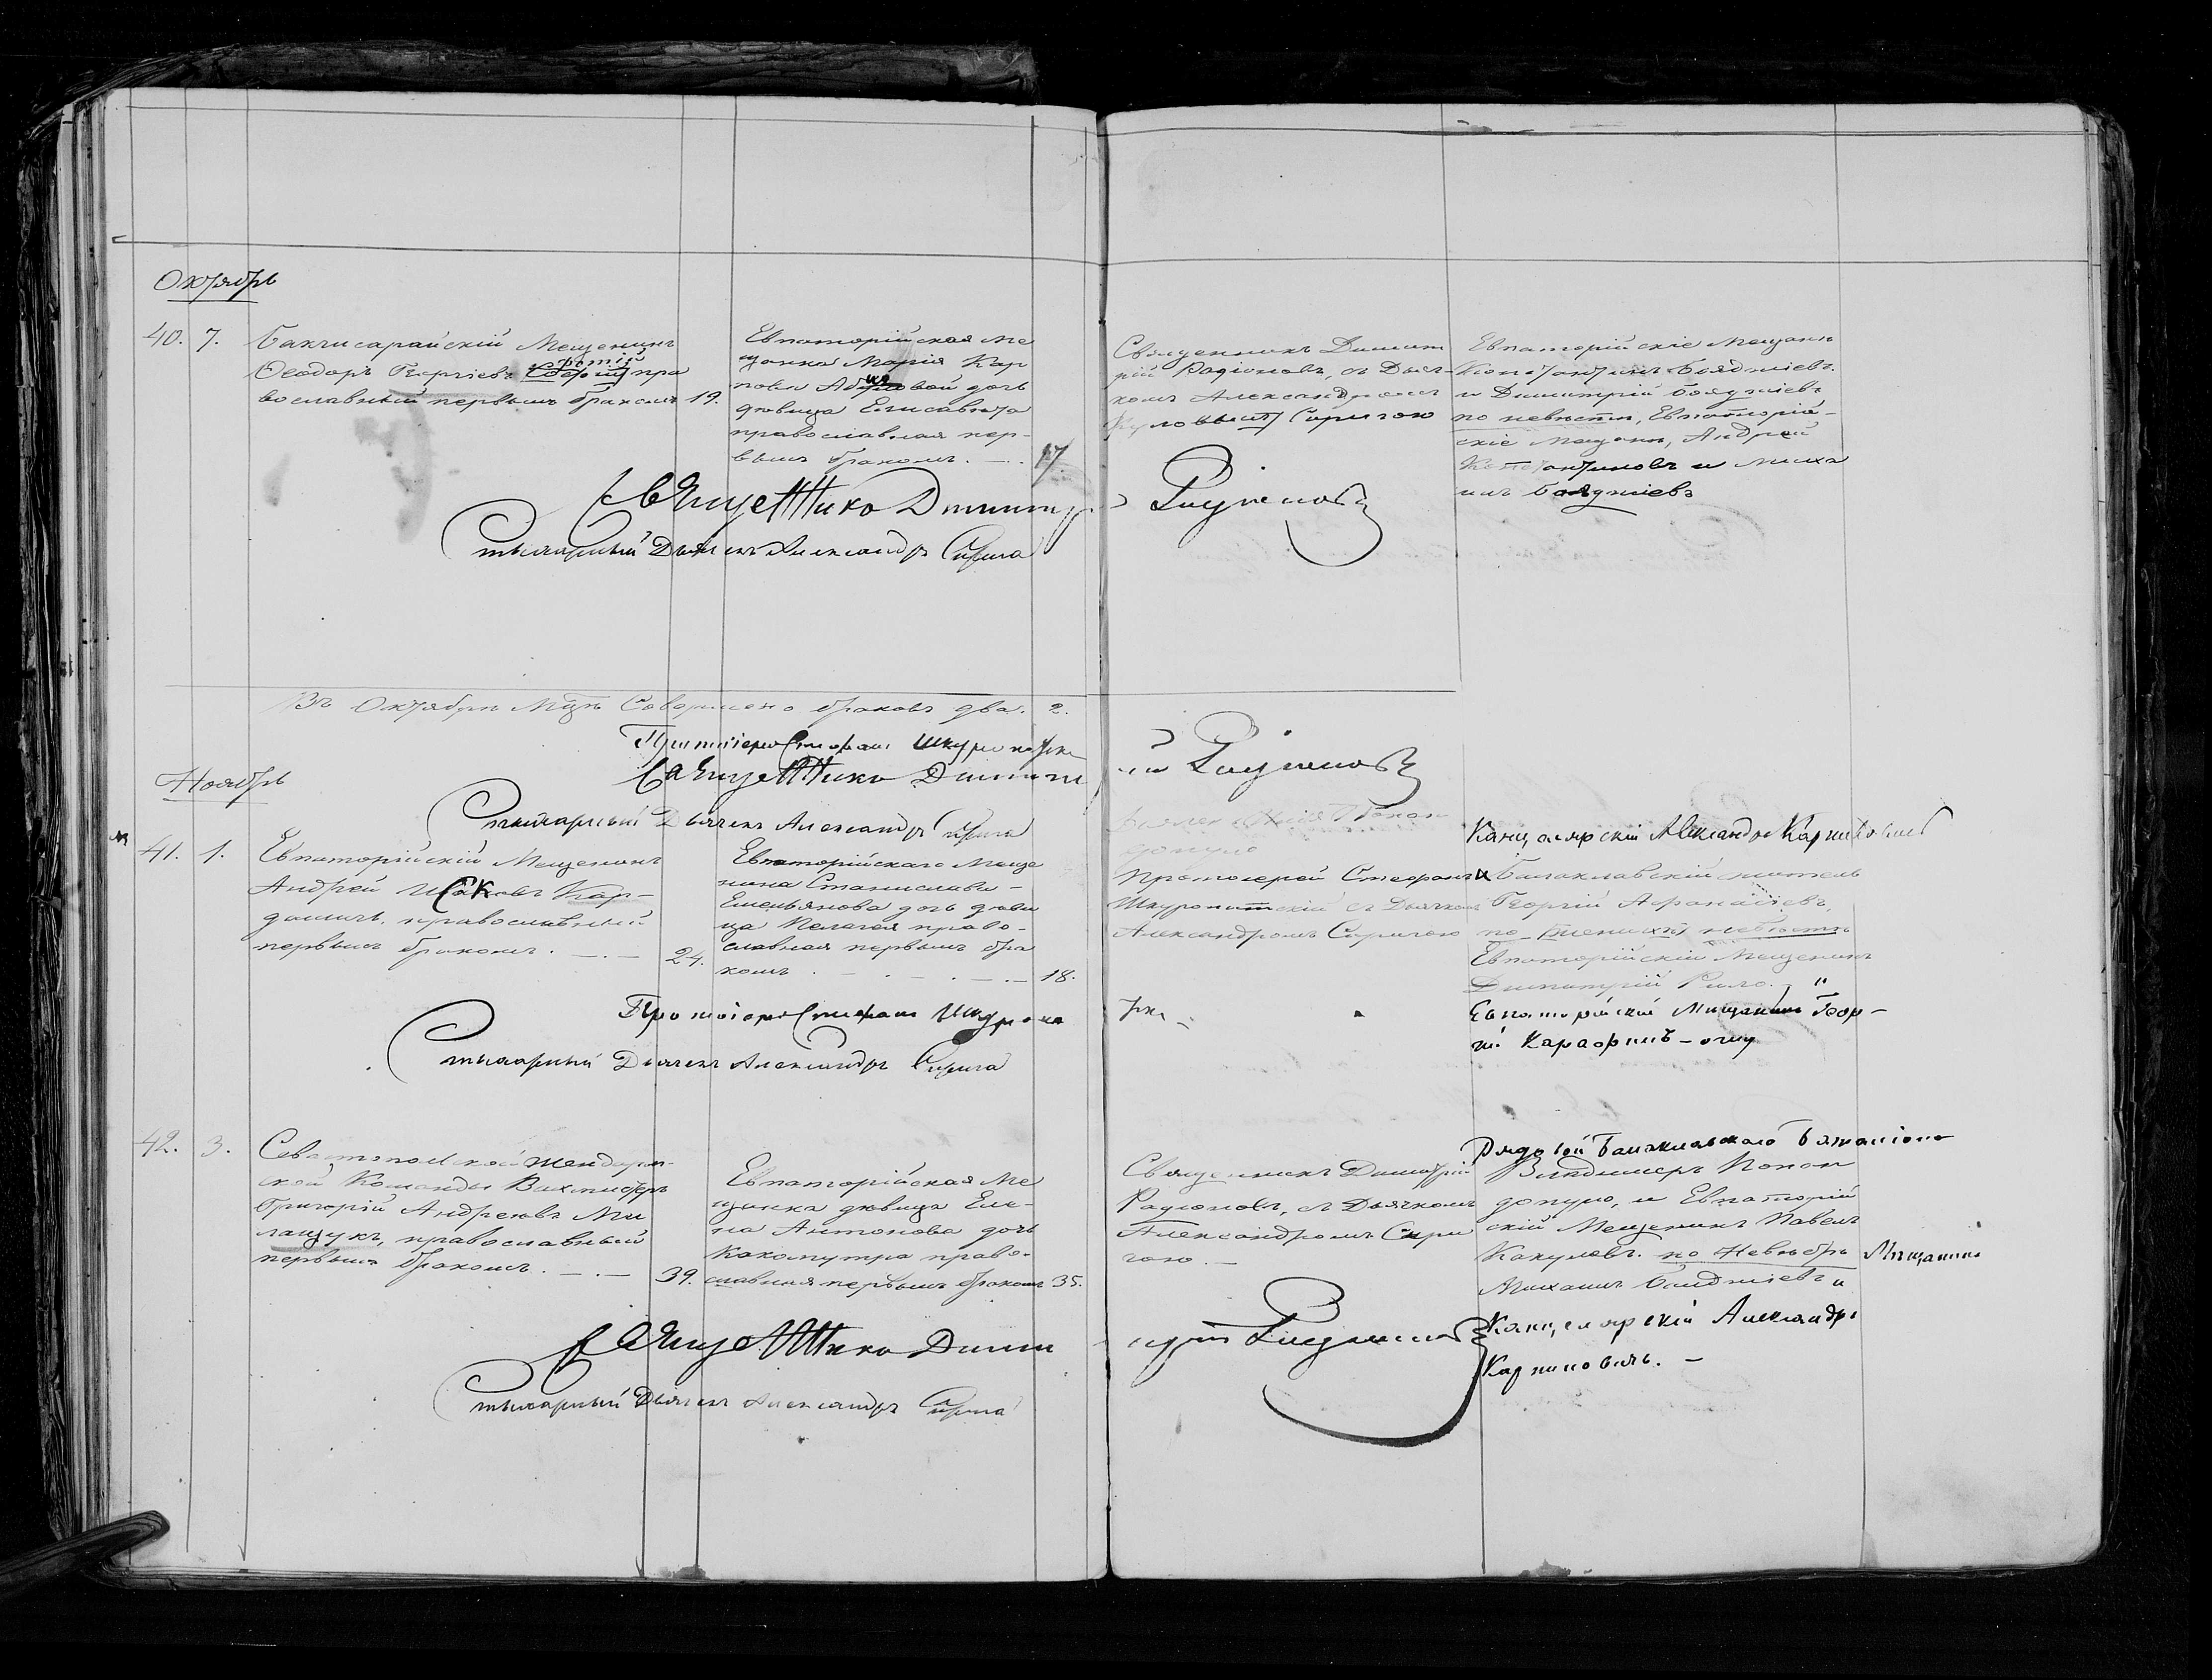 Октябрь
40. 7. Бахчисарайскій Мещанинъ
Ѳеодоръ Георгіевъ пра
вославный первымъ бракомъ 19.
Евпаторійская Ме
щанка Марія Кар
повой дочь
дѣвица Елисавета
православная пер-
вымъ бракомъ. 17.
Священникъ Димит
рій Радіоновъ, съ Дьяч-
комъ Александромъ
Сиригою
Евпаторійскіе Мещане
Константинъ Бояджіевъ
и Димитрій Бояджіевъ
по невѣстѣ, Евпаторій-
скіе Мещане, Андрей
Константиновъ и Миха
илъ Бояджіевъ
Священникъ Димитрі Радіоновъ
Стихарный Дьячекъ Александръ Сирига
Въ Октябрѣ Мцѣ Совершено браковъ два. 2.
Протоіерей Стефанъ Шкуропатскі
Священникъ Димитрій Радіоновъ
Стихарный Дьячекъ Александръ Сирига
Ноябрь
41. 1. Евпаторійскій Мещанинъ
Андрей Кар-
дашичъ, православный
первымъ бракомъ. 24.
Евпаторійскаго Меща
нина Станислава
Емельянова дочь дѣви
ца Пелагея право-
славная первымъ бра
комъ 18.
Протоіерей Стефанъ
Шкуропатскій съ Дьячкомъ
Александромъ Сиригою
Канцелярскій Александръ Карпиковичъ
и Балаклавскій житель
Георгій Афанасіевъ,
по невѣстѣ
Евпаторійскій Мещанинъ
Димитрій Рило. "
Евпаторійскій Мищанинъ Геор-
гій
Протоіерей Стефанъ Шкуропатскі
Стихарный Дьячекъ Александръ Сирига
42. 3. Севастопольской жендарм-
ской Команды Вахмистръ
Григорій Андреевъ Ми
лащукъ, православный
первымъ бракомъ. 39.
Евпаторійская Ме
щанка дѣвица Еле-
на Антонова дочь
Какопутра право-
славная первымъ бракомъ 35.
Священникъ Димитрій
Радіоновъ, съ Дьячкомъ
Александромъ Сири
гою.
Рядовой Балаклавскаго Баталіона
Владимеръ Попан
допуло, и Евпаторій
скій Мещанинъ Павелъ
Какулевъ. по Невѣстѣ Мищанинъ
Михаилъ Баиджіевъ и
Канцелярскій Александръ
Карпиковичь.
Священникъ Димитрій Радіоновъ
Стихарный Дьячекъ Александръ Сирига